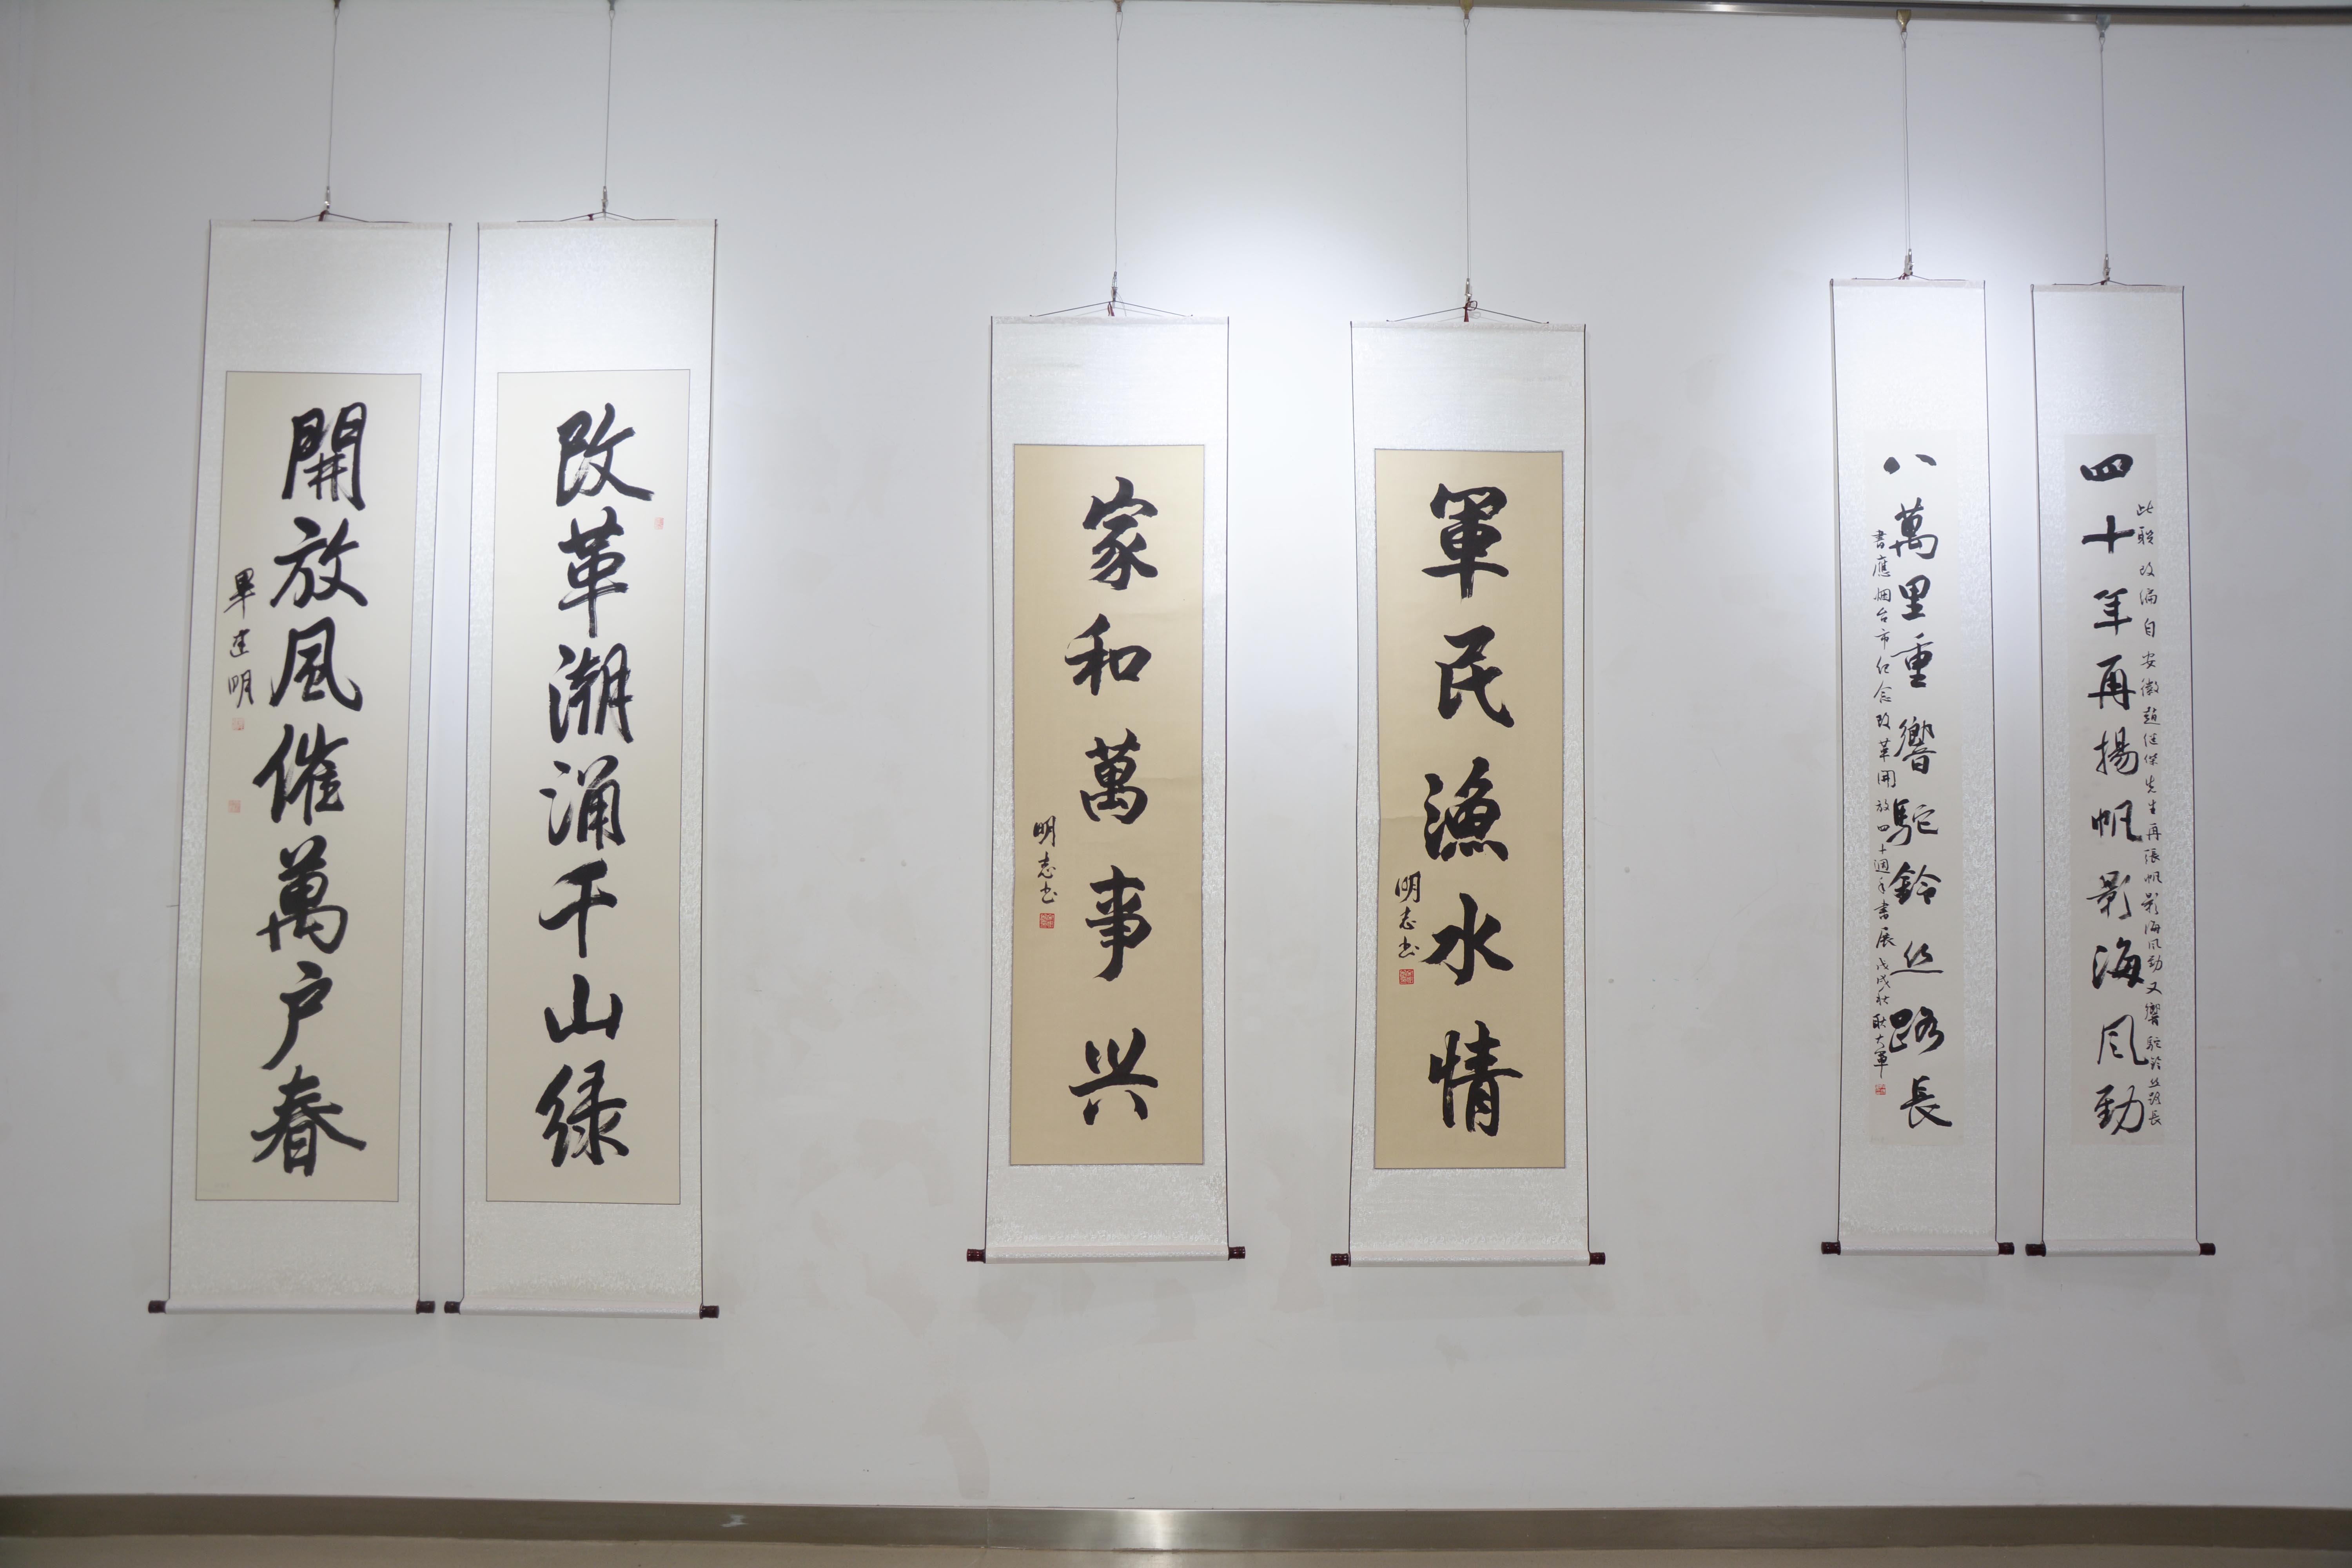 四十年再揚帆影海风勁
此联改编自安徽趙继傑先生再張帆影海风勁又響駝鈴丝路長
八萬里重響駝鈴丝路長
書應烟台市纪念改革開放四十週年書展戊戌秋耿大軍
軍民漁水情
明志书
家和萬事兴
明志书
改革潮涌千山绿
開放风催萬户春
畢建明